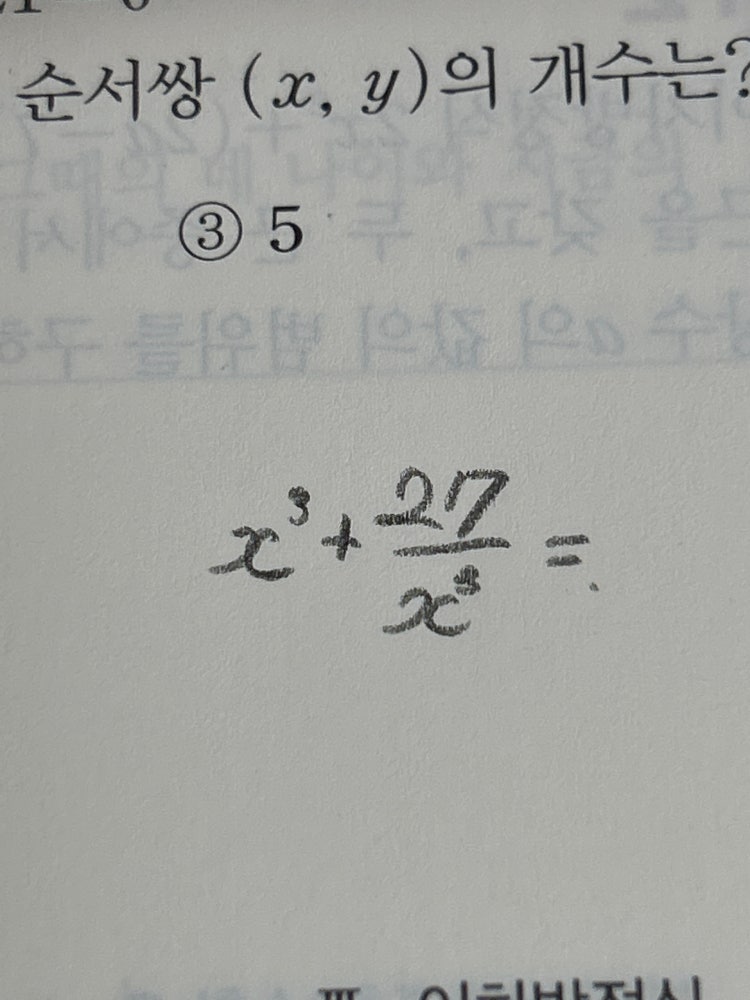 순서쌍 (x, y)의 개수는?
③ 5
x³ + 27/x³ =